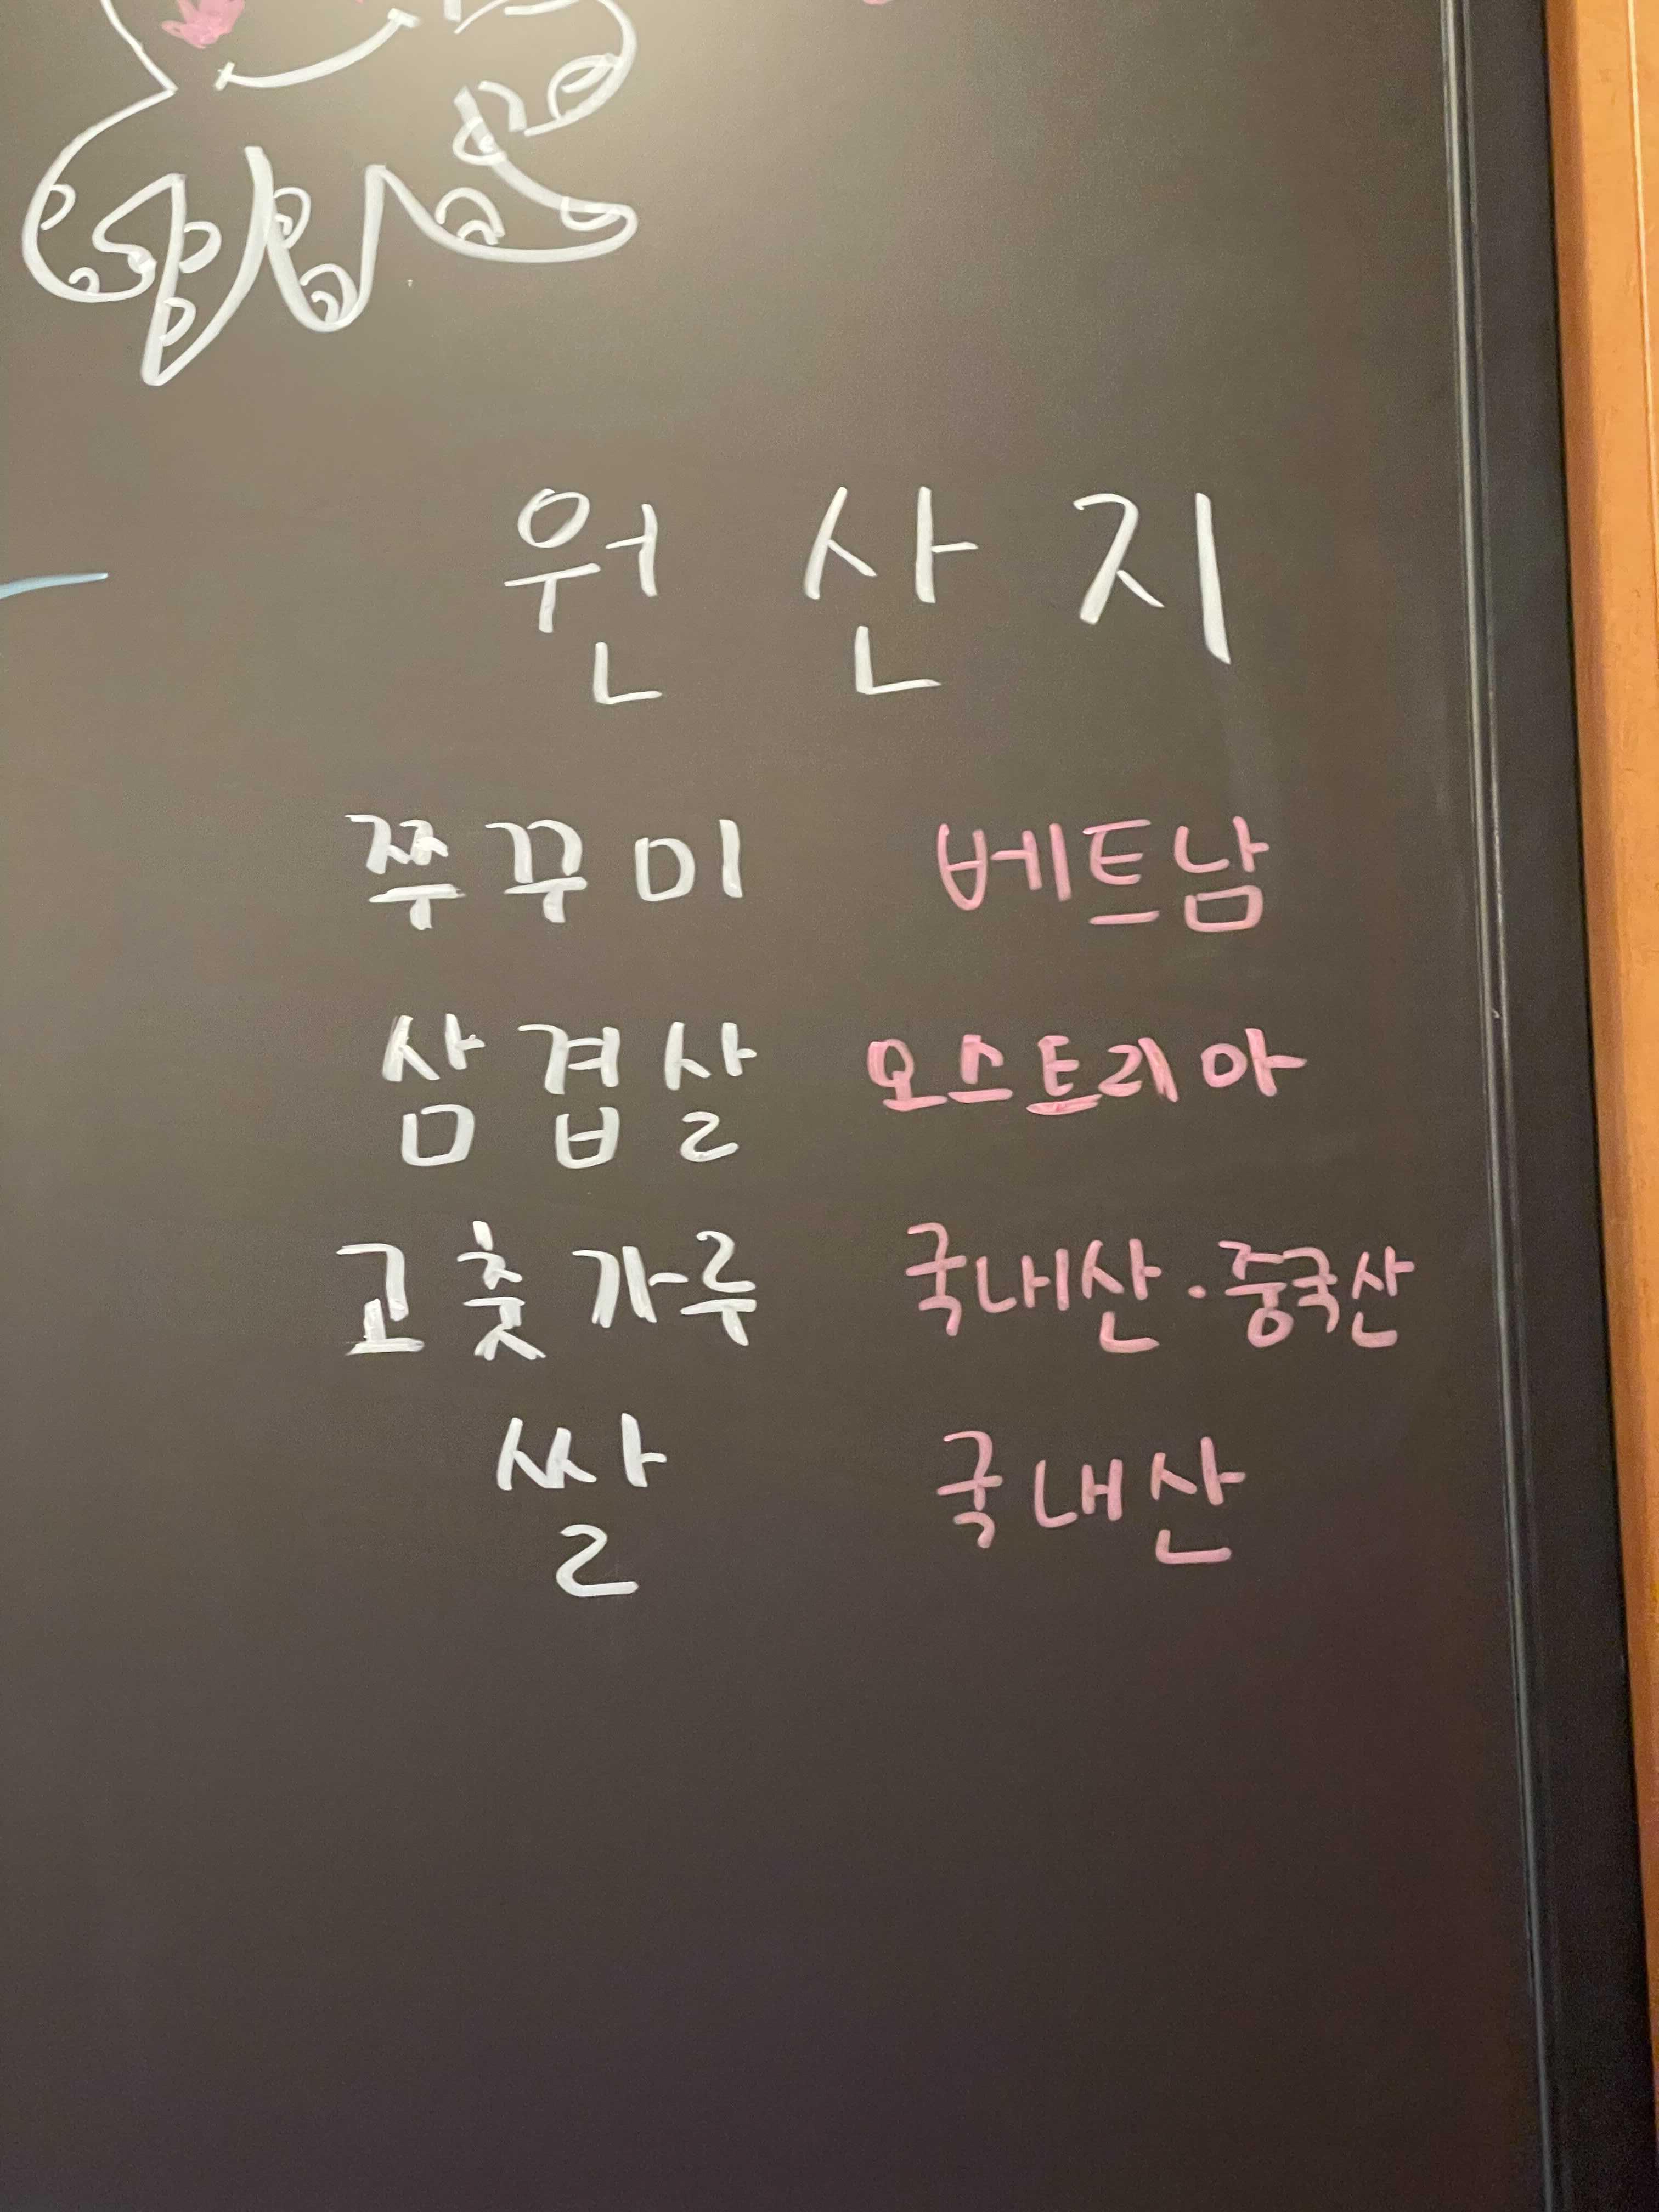 원산지
쭈꾸미 베트남
삼겹살 오스트리아
고춧가루 국내산·중국산
쌀 국내산